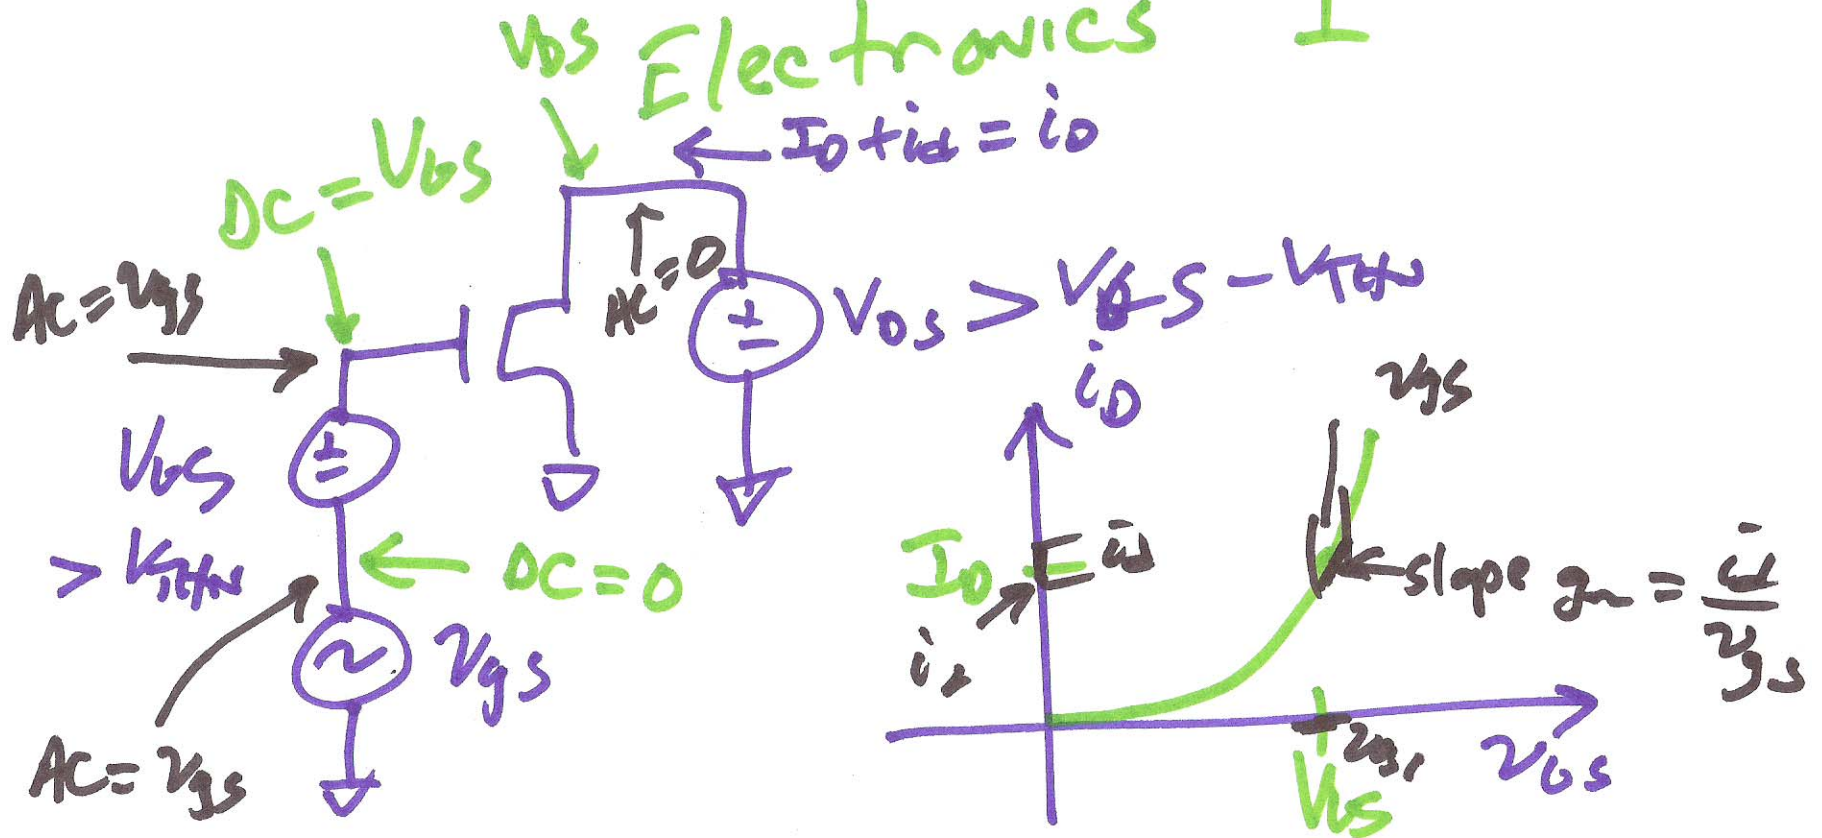 Electronics I
VDS
ID + id = iD
DC = VGS
AC = vgs
AC = 0
VDS > VGS - VTHN
VGS
> VTHN
DC = 0
vgs
AC = vgs
iD
vgs
ID
id
slope gm = id / vgs
VGS
vGS